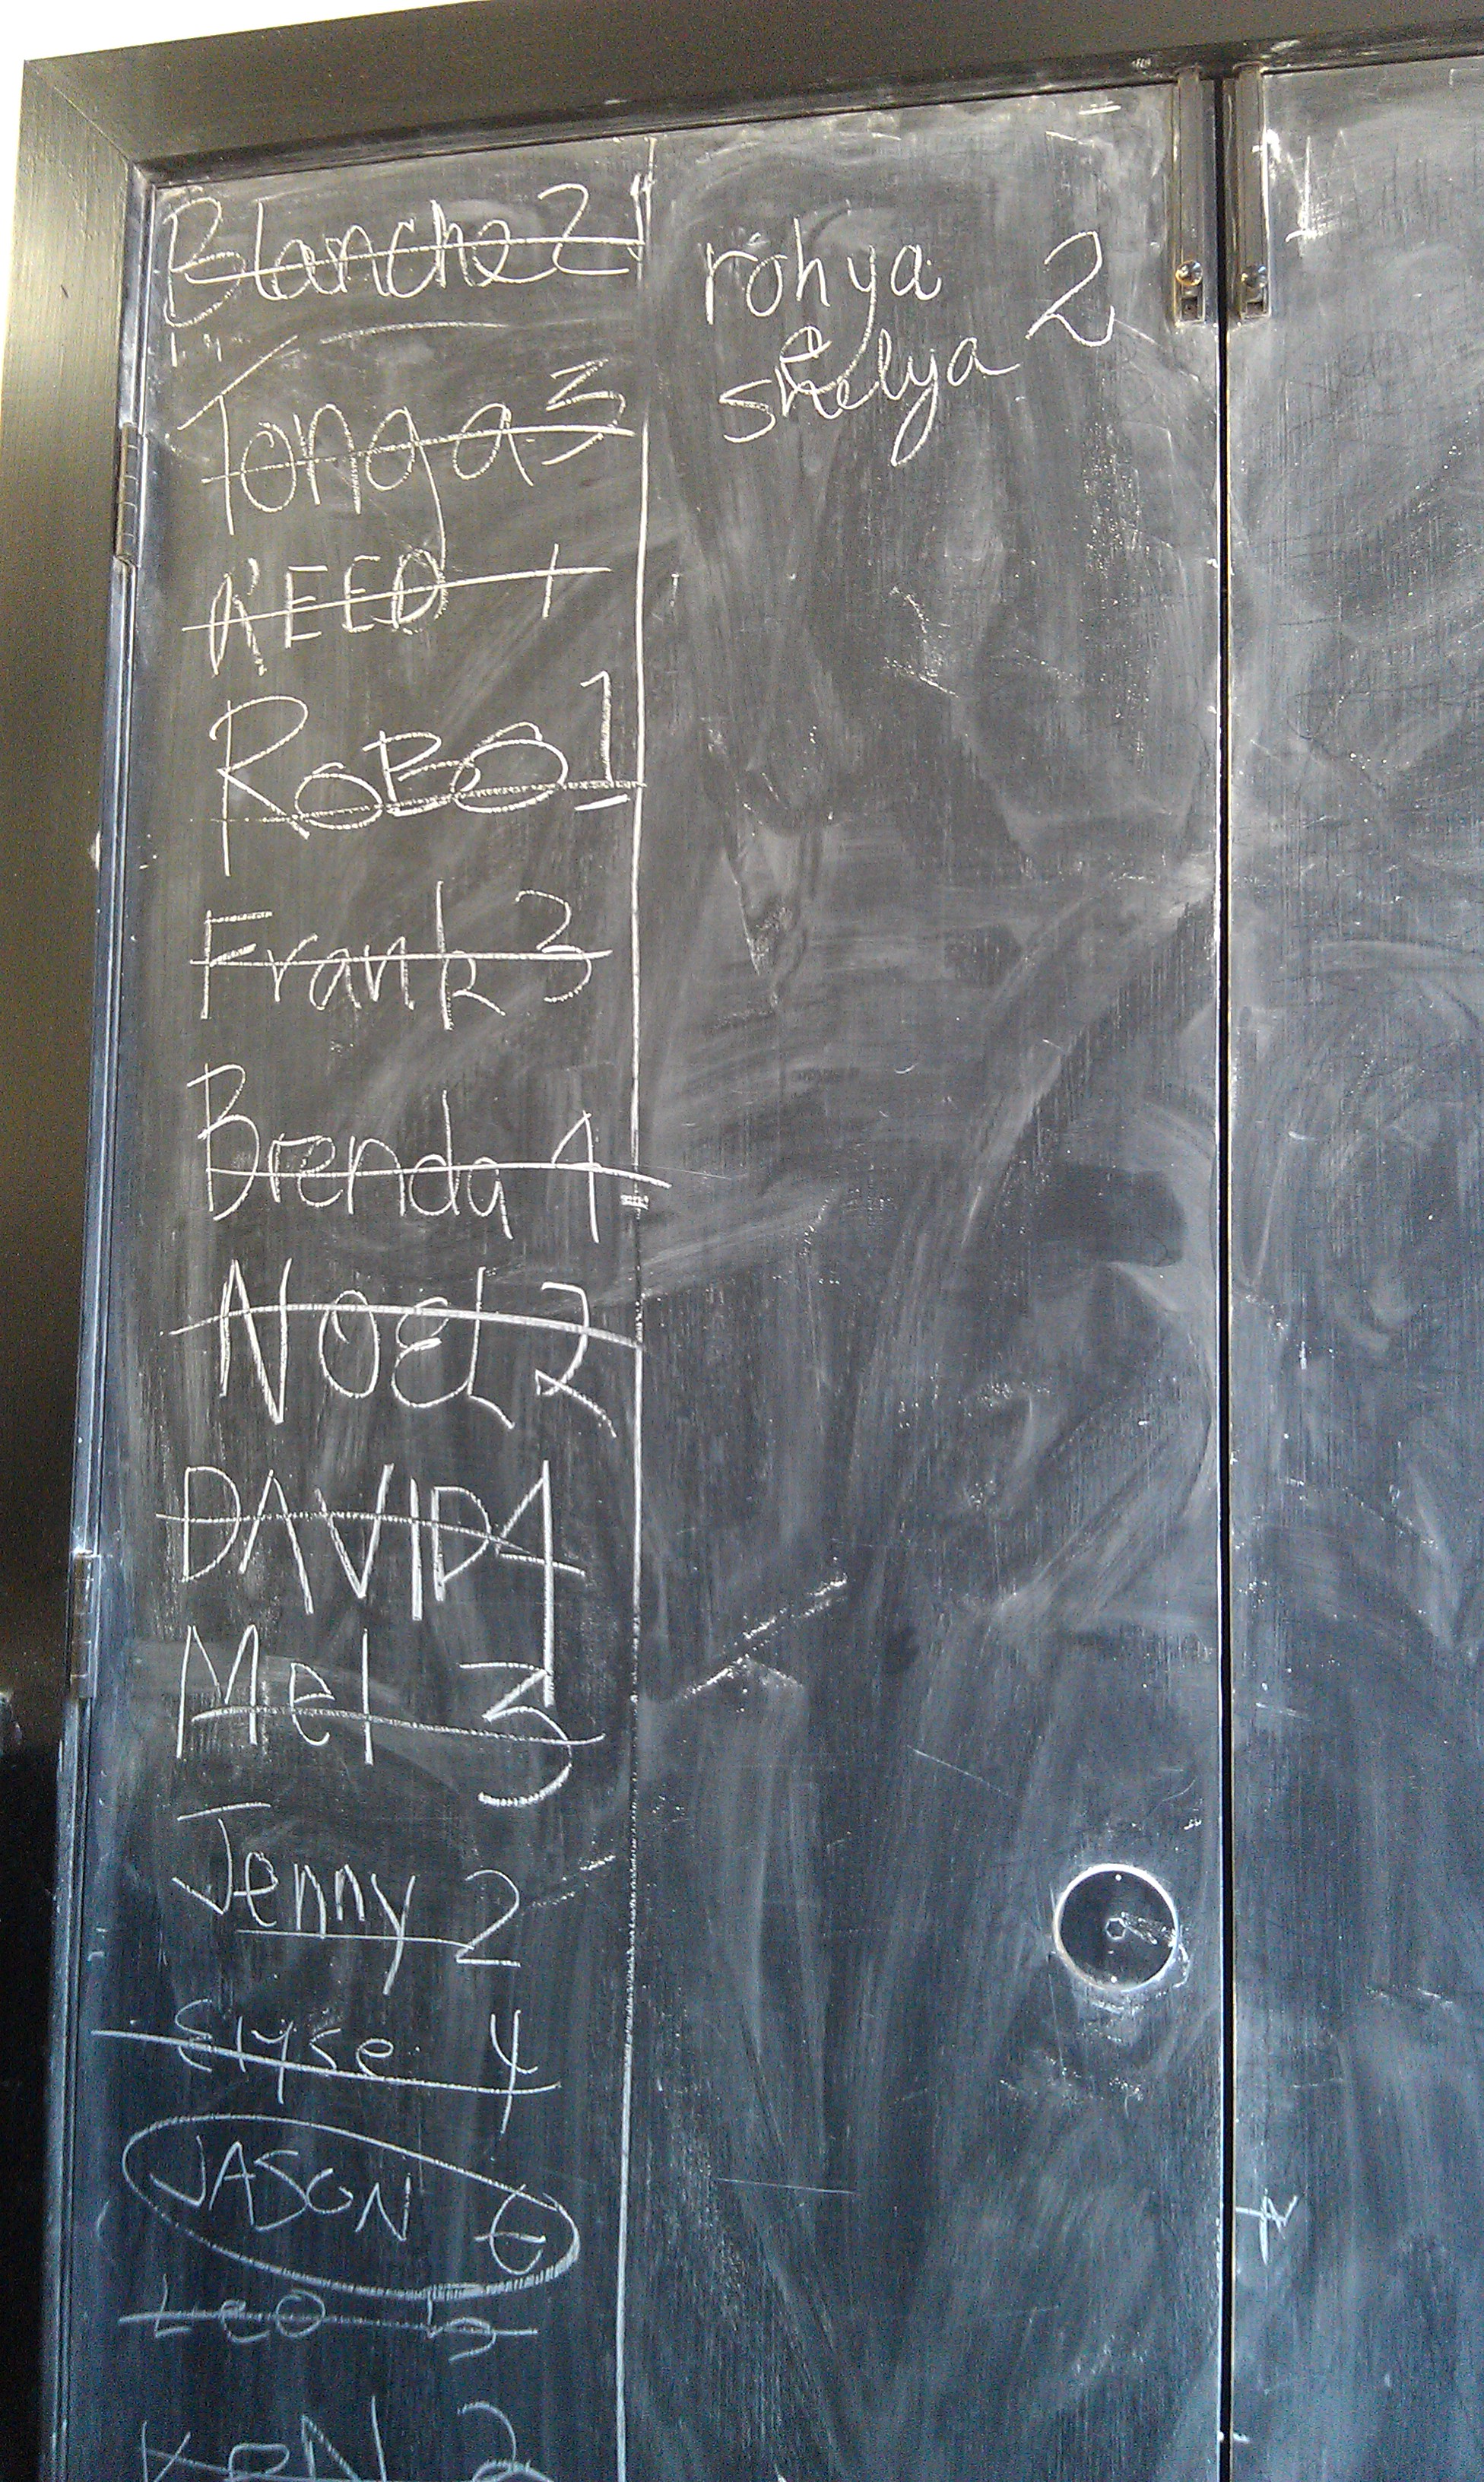 Blanche 2
Tonga 3
REED 1
ROBO 1
Frank 3
Brenda 4
NOEL 2
DAVID 4
Mel 3
Jenny 2
Elyse 4
JASON 6
LEO 5
KEN 2
rohya
2